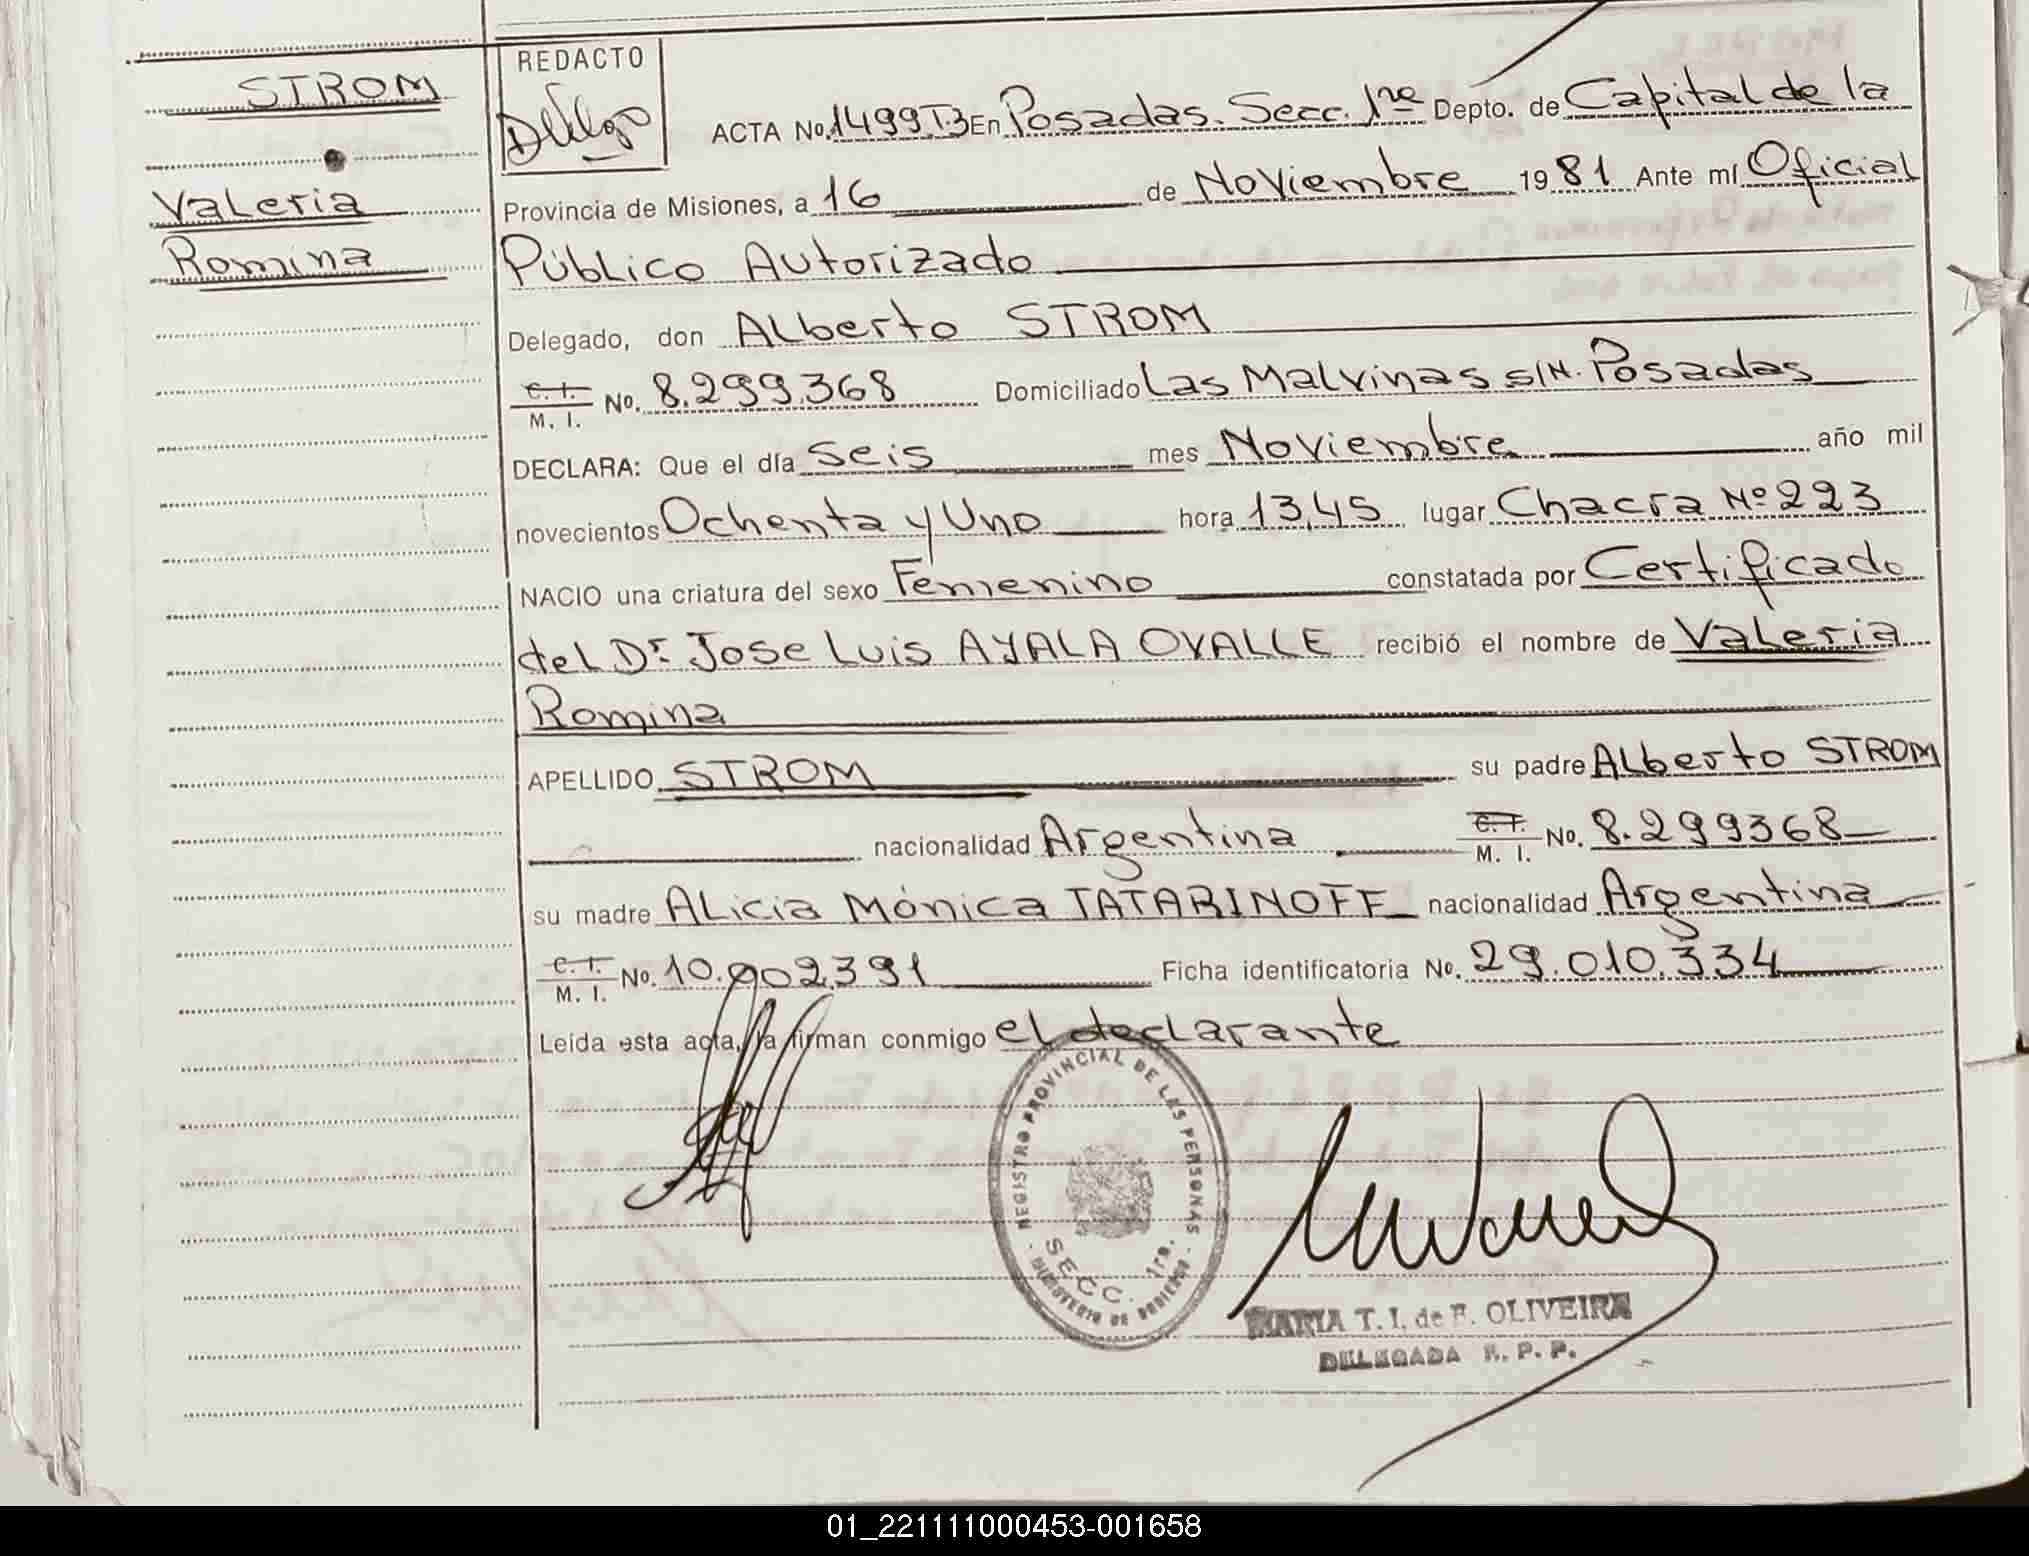 STROM
Valeria
Romina
REDACTO
ACTA No. 1499 T.3 En Posadas. Secc. 1ra Depto. de Capital de la
Provincia de Misiones, a 16 de Noviembre 1981 Ante mí Oficial
Público Autorizado
Delegado, don Alberto STROM
C. I. / M. I. No. 8.299.368 Domiciliado Las Malvinas s/N. Posadas
DECLARA: Que el día seis mes Noviembre año mil
novecientos Ochenta y Uno hora 13,45 lugar Chacra Nº 223
NACIO una criatura del sexo Femenino constatada por Certificado
del Dr. Jose Luis AYALA OVALLE recibió el nombre de Valeria
Romina
APELLIDO STROM su padre Alberto STROM
nacionalidad Argentina C. I. / M. I. No. 8.299368
su madre Alicia Mónica TATARINOFF nacionalidad Argentina
C. I. / M. I. No. 10.902.391 Ficha identificatoria No. 29.010.334
Leída esta acta, la firman conmigo el declarante
REGISTRO PROVINCIAL DE LAS PERSONAS
SECC. 1ra.
MINISTERIO DE GOBIERNO
MARIA T. I. de F. OLIVEIRA
DELEGADA R. P. P.
01_221111000453-001658